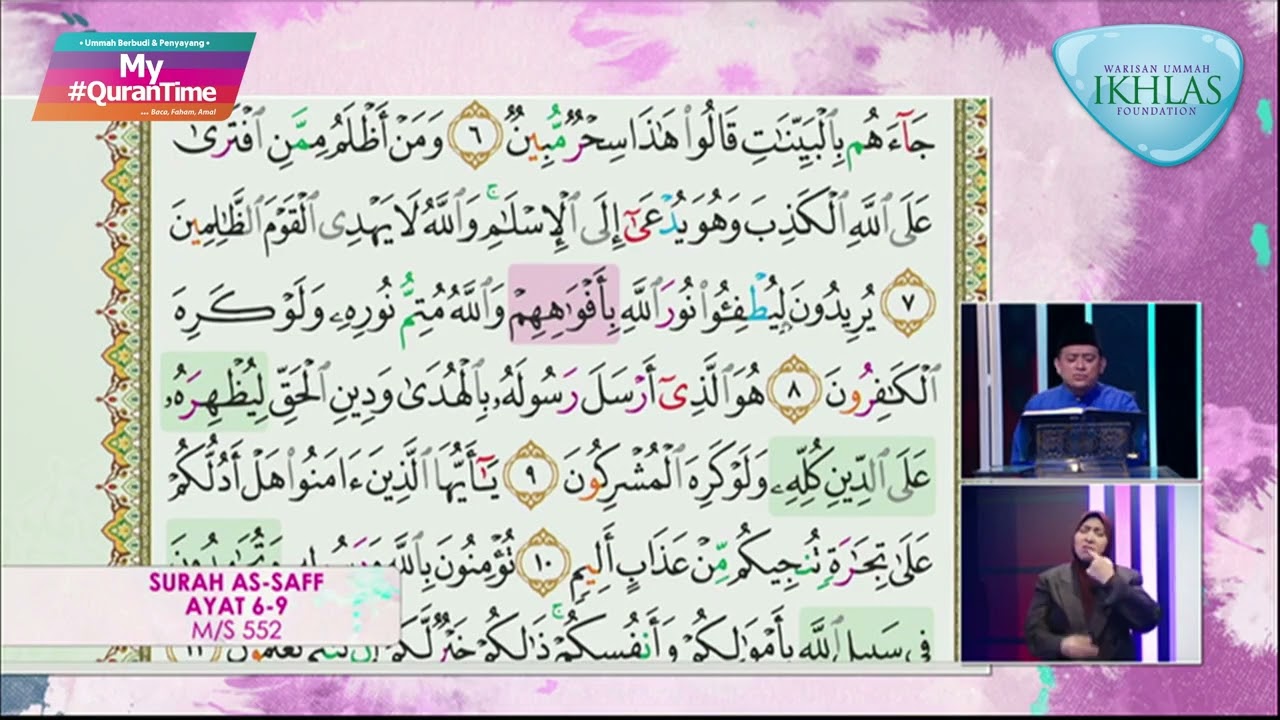 • Ummah Berbudi & Penyayang •
My
#QuranTime
... Baca, Faham, Amal
WARISAN UMMAH
IKHLAS
FOUNDATION
جَآءَهُم بِٱلْبَيِّنَٰتِ قَالُوا۟ هَٰذَا سِحْرٌ مُّبِينٌ ٦ وَمَنْ أَظْلَمُ مِمَّنِ ٱفْتَرَىٰ
عَلَى ٱللَّهِ ٱلْكَذِبَ وَهُوَ يُدْعَىٰٓ إِلَى ٱلْإِسْلَٰمِ ۚ وَٱللَّهُ لَا يَهْدِى ٱلْقَوْمَ ٱلظَّٰلِمِينَ
٧ يُرِيدُونَ لِيُطْفِـُٔوا۟ نُورَ ٱللَّهِ بِأَفْوَٰهِهِمْ وَٱللَّهُ مُتِمُّ نُورِهِۦ وَلَوْ كَرِهَ
ٱلْكَٰفِرُونَ ٨ هُوَ ٱلَّذِىٓ أَرْسَلَ رَسُولَهُۥ بِٱلْهُدَىٰ وَدِينِ ٱلْحَقِّ لِيُظْهِرَهُۥ
عَلَى ٱلدِّينِ كُلِّهِۦ وَلَوْ كَرِهَ ٱلْمُشْرِكُونَ ٩ يَٰٓأَيُّهَا ٱلَّذِينَ ءَامَنُوا۟ هَلْ أَدُلُّكُمْ
عَلَىٰ تِجَٰرَةٍ تُنجِيكُم مِّنْ عَذَابٍ أَلِيمٍ ١٠ تُؤْمِنُونَ بِٱللَّهِ وَرَسُولِهِۦ وَتُجَٰهِدُونَ
فِى سَبِيلِ ٱللَّهِ بِأَمْوَٰلِكُمْ وَأَنفُسِكُمْ ۚ ذَٰلِكُمْ خَيْرٌ لَّكُمْ إِن كُنتُمْ تَعْلَمُونَ ١١
SURAH AS-SAFF
AYAT 6-9
M/S 552